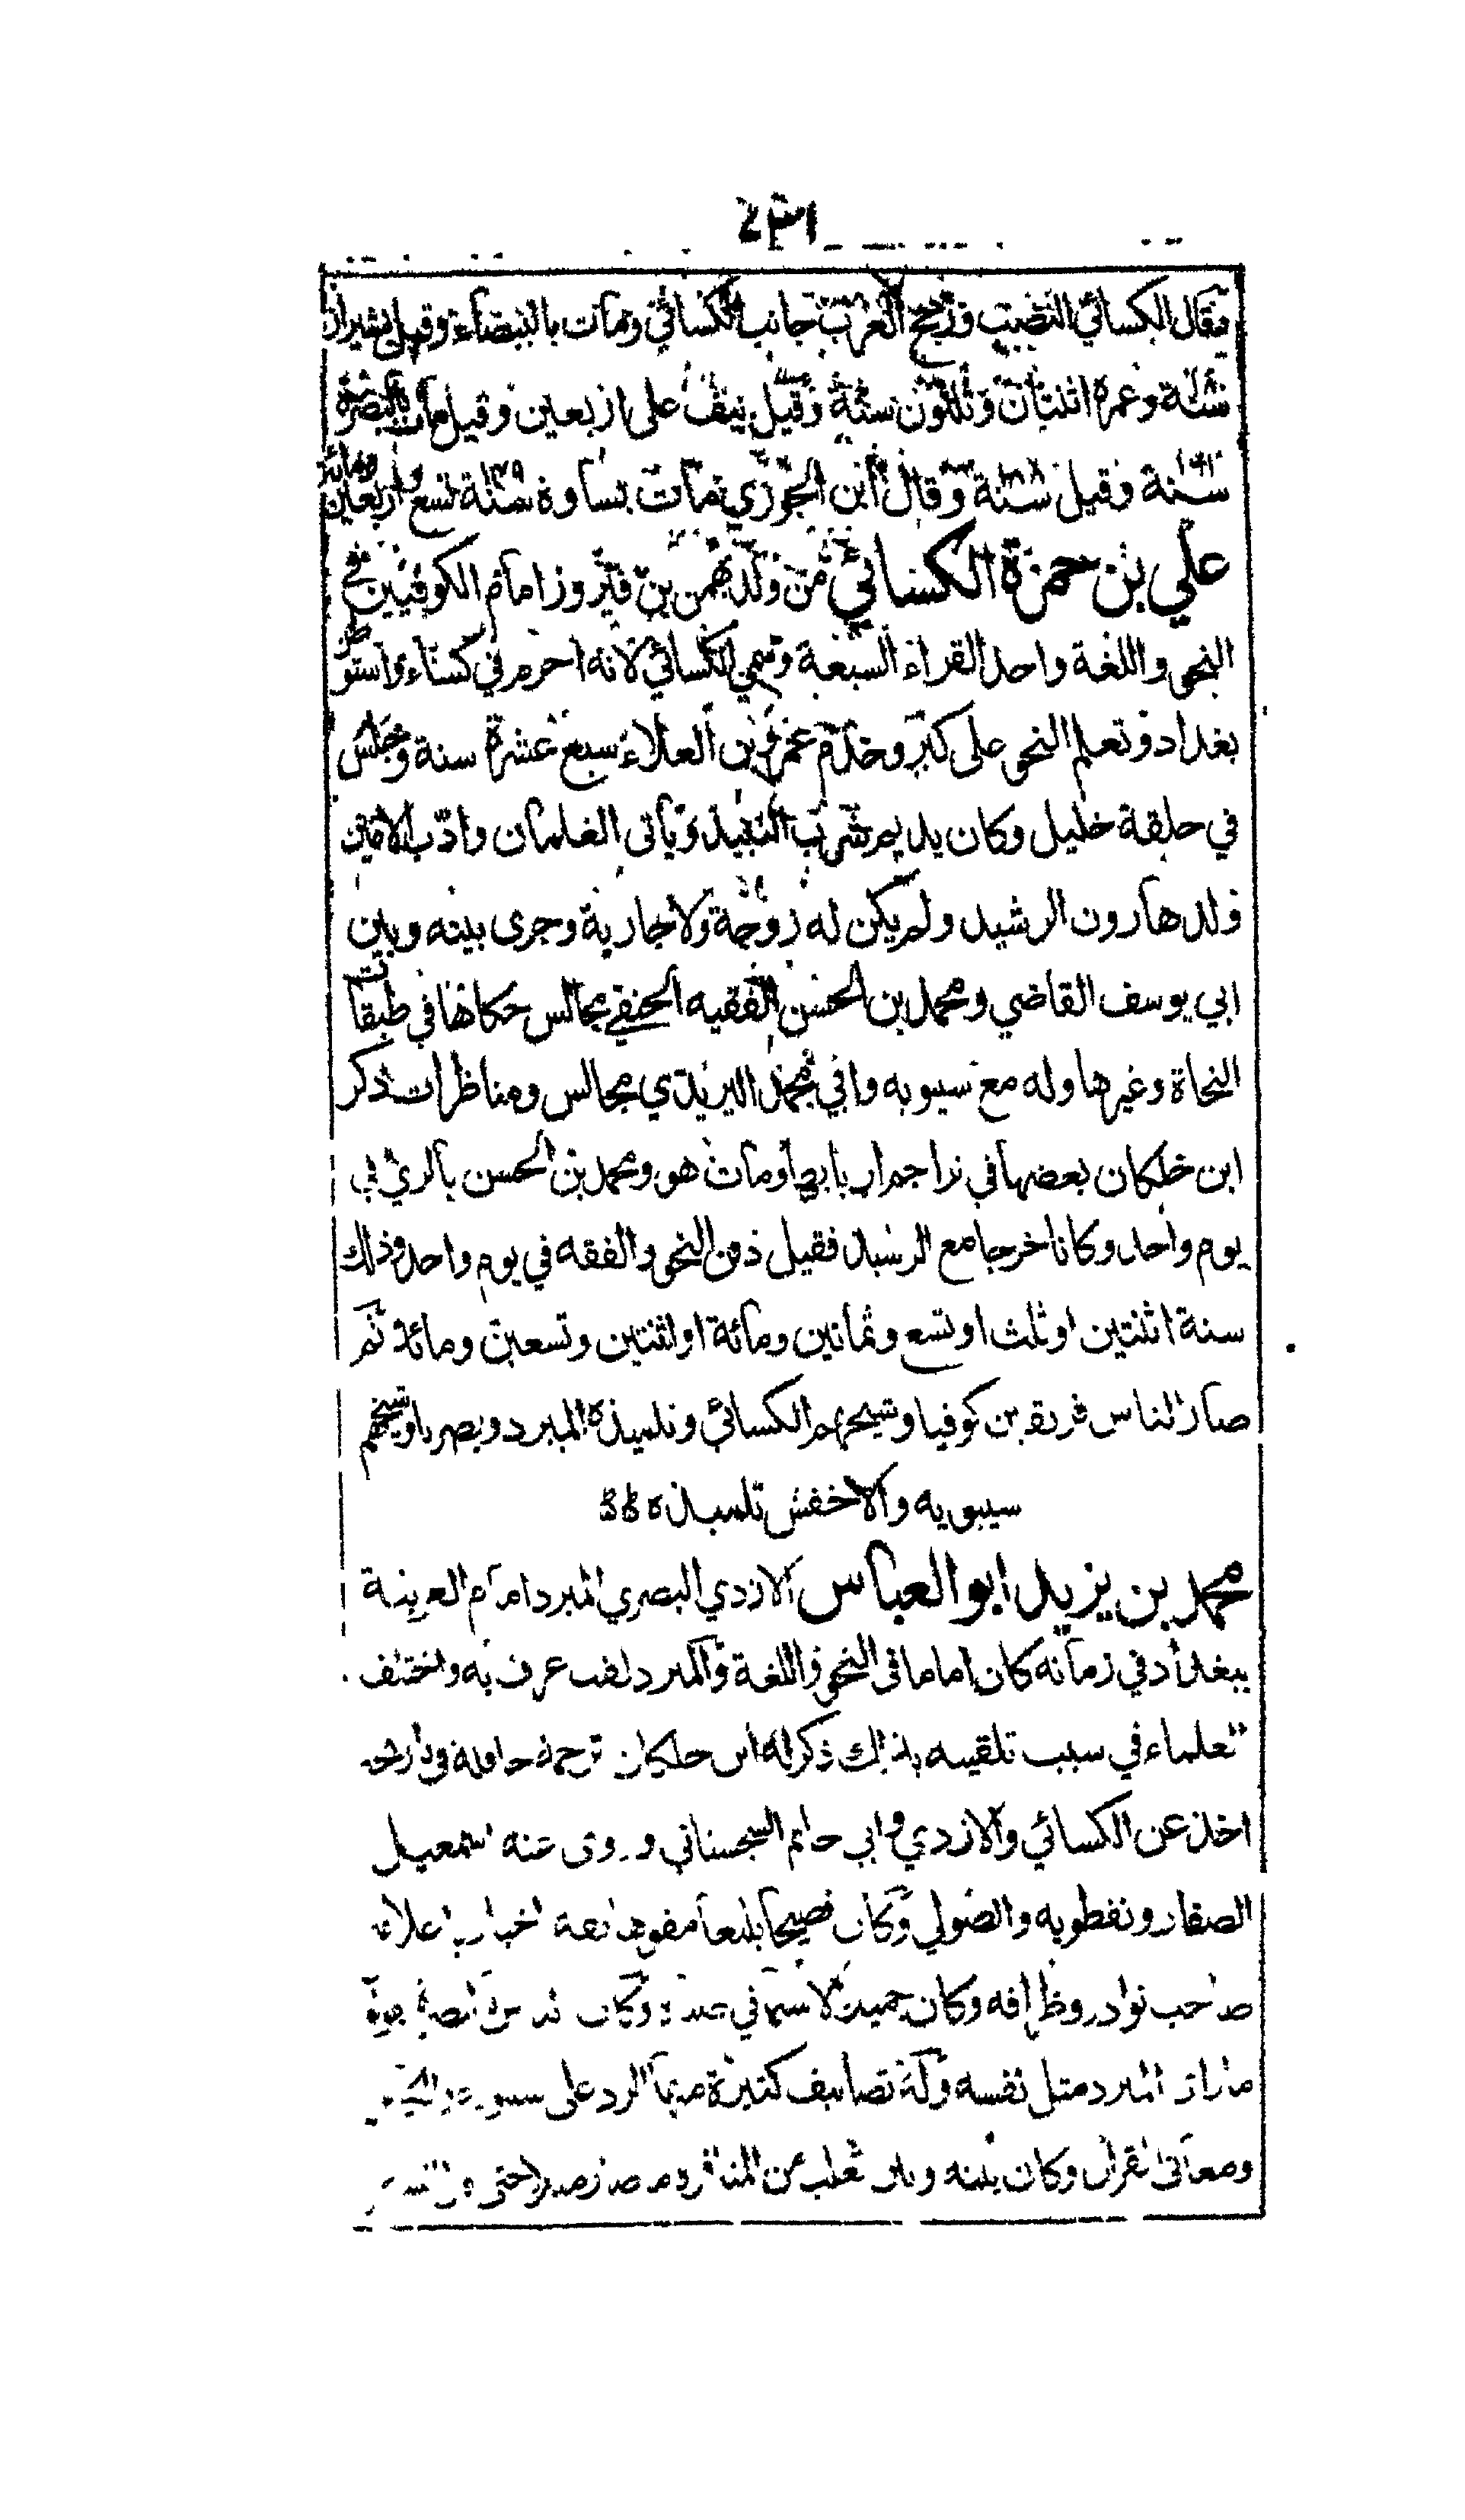 فقال الكسائي النصب ورجح العرب جانب الكسائي ومات بالبيضاء وقيل بشيراز
سنة وعمره اثنتان وثلثون سنة وقيل نيف على اربعين وقيل مات بالبصرة
سنة وقيل سنة وقال ابن الجوزي مات بساوة سنة تسع واربعين ومائة
علي بن حمزة الكسائي من ولد بهمن بن فيروز امام الكوفيين في
النحو واللغة واحد القراء السبعة وسمي الكسائي لانه احرم في كساء واستوطن
بغداد وتعلم النحو على كبر وخدم عمرو بن العلاء سبع عشرة سنة وجلس
في حلقة خليل وكان يديم شرب النبيذ وياتى الغلمان وادب الامين
ولد هارون الرشيد ولم يكن له زوجة ولا جارية وجرى بينه وبين
ابي يوسف القاضي ومحمد بن الحسن الفقيه الحنفي مجالس حكاها في طبقات
النحاة وغيرها وله مع سيبويه وابي محمد اليزيدي مجالس ومناظرات ذكر
ابن خلكان بعضها في تراجم اربابها ومات هو ومحمد بن الحسن بالري في
يوم واحد وكانا خرجا مع الرشيد فقيل دفن النحو والفقه في يوم واحد وذلك
سنة اثنتين او ثلث او تسع وثمانين ومائة او اثنتين وتسعين ومائة ثم
صار الناس فريقين كوفيا وشيخهم الكسائي وتلميذه المبرد وبصريا وشيخهم
سيبويه والاخفش تلميذه
محمد بن يزيد ابو العباس الازدي البصري المبرد امام العربية
ببغداد في زمانه كان اماما في النحو واللغة والمبرد لقب عرف به واختلف
العلماء في سبب تلقيبه بذلك ذكر له ابن خلكان ترجمة حافلة في تاريخه
اخذ عن الكسائي والازدي وابي حاتم السجستاني وروى عنه اسمعيل
الصفار ونفطويه والصولي وكان فصيحا بليغا مفوها ثقة اخباريا علامة
صاحب نوادر وظرافة وكان جميلا لا سيما في
ما راى المبرد مثل نفسه وله تصانيف كثيرة منها الرد على سيبويه
ومعانى القران وكان بينه وبين ثعلب من المنافرة